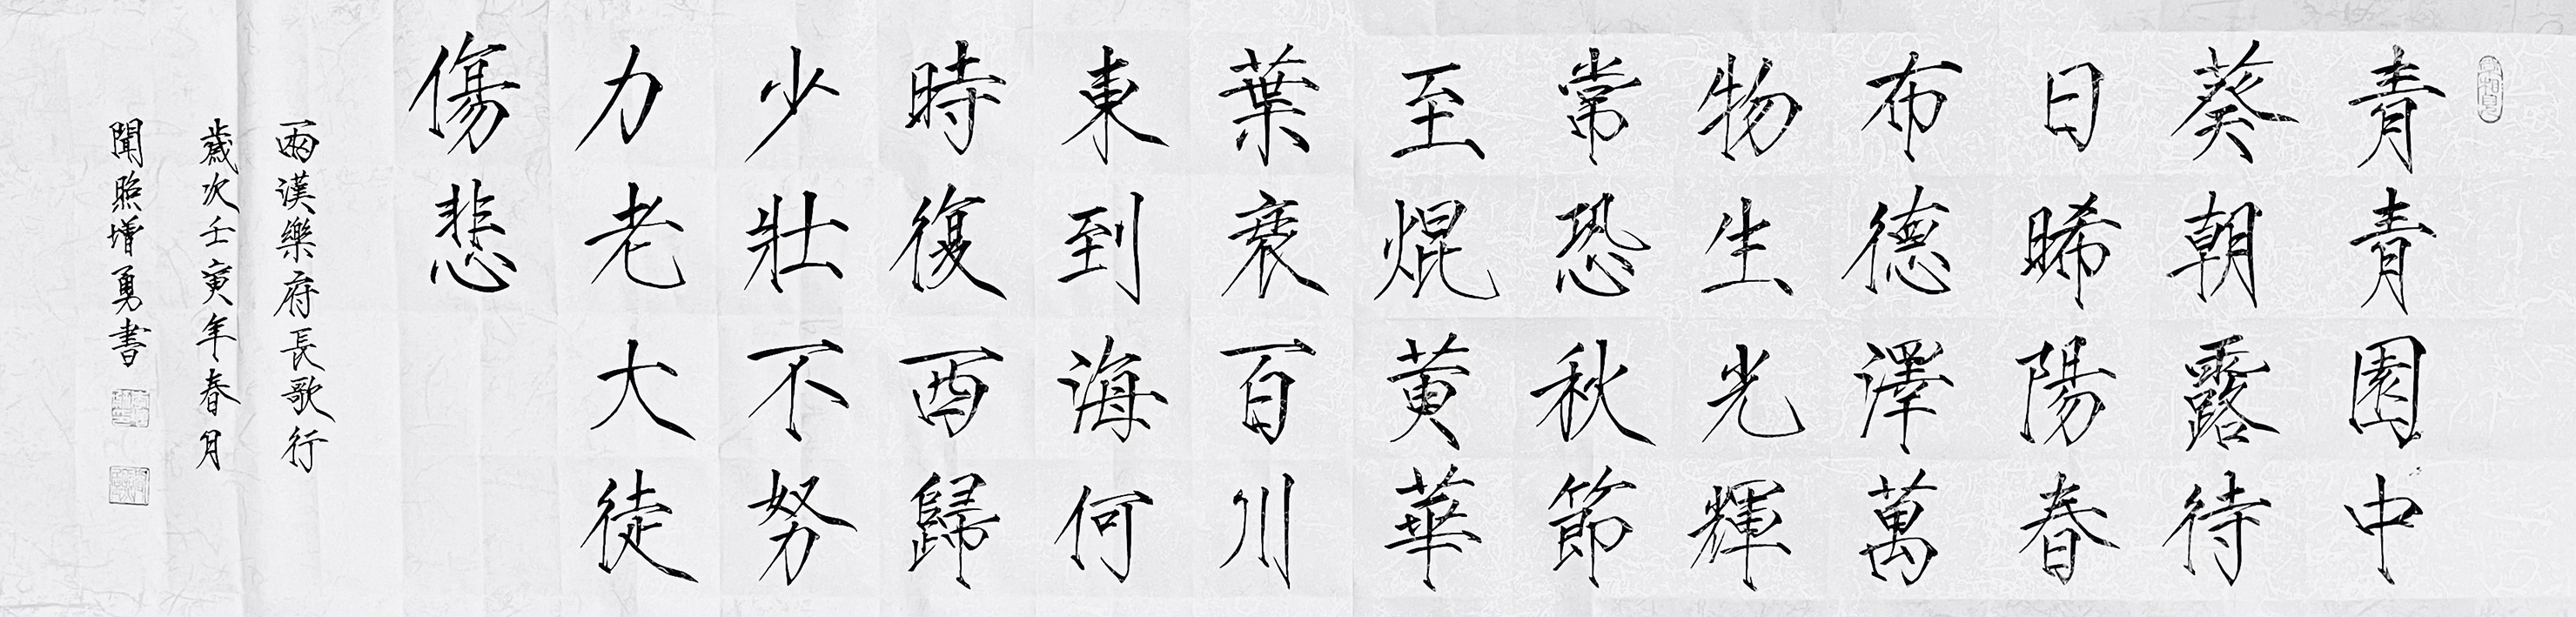 青青園中
葵朝露待
日晞陽春
布德澤萬
物生光輝
常恐秋節
至焜黄華
葉衰百川
東到海何
時復西歸
少壯不努
力老大徒
傷悲
兩漢樂府長歌行
歲次壬寅年春月
聞照增勇書